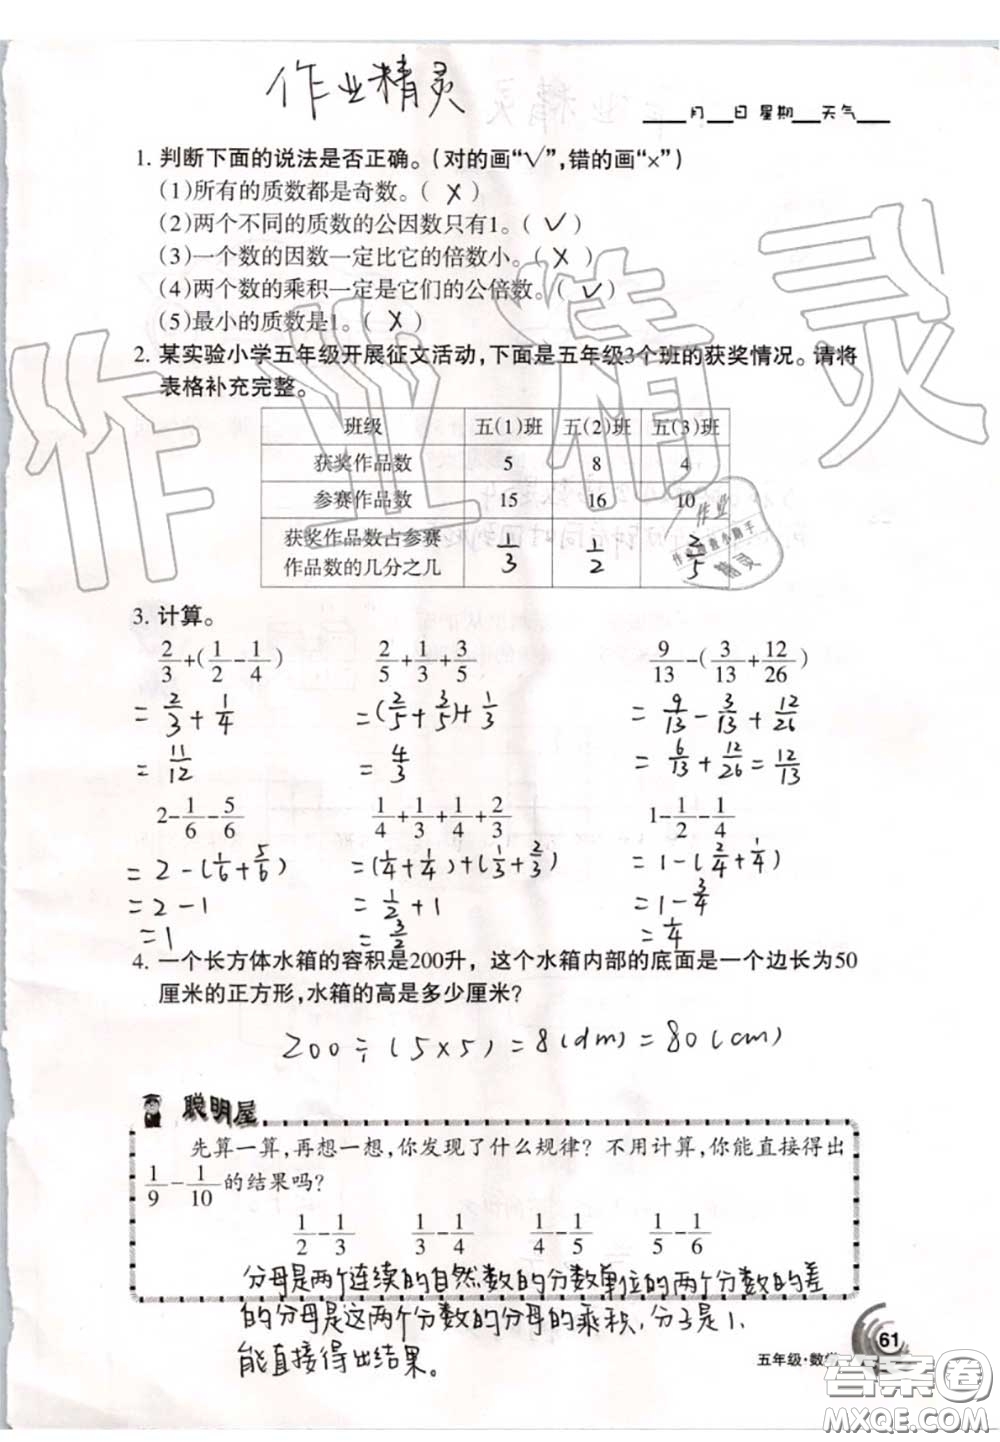 作业精灵
___月___日 星期___天气___
1. 判断下面的说法是否正确。(对的画“√”,错的画“×”)
(1)所有的质数都是奇数。( X )
(2)两个不同的质数的公因数只有1。( ✓ )
(3)一个数的因数一定比它的倍数小。( X )
(4)两个数的乘积一定是它们的公倍数。( ✓ )
(5)最小的质数是1。( X )
2. 某实验小学五年级开展征文活动,下面是五年级3个班的获奖情况。请将
表格补充完整。
班级 五(1)班 五(2)班 五(3)班
获奖作品数 5 8 4
参赛作品数 15 16 10
获奖作品数占参赛
作品数的几分之几 1/3 1/2 2/5
3. 计算。
2/3+(1/2-1/4) 2/5+1/3+3/5 9/13-(3/13+12/26)
= 2/3 + 1/4 =(2/5+3/5)+1/3 = 9/13 - 3/13 + 12/26
= 11/12 = 4/3 = 6/13 + 12/26 = 12/13
2-1/6-5/6 1/4+1/3+1/4+2/3 1-1/2-1/4
= 2-(1/6+5/6) =(1/4+1/4)+(1/3+2/3) = 1-(2/4+1/4)
= 2-1 = 1/2+1 = 1-3/4
= 1 = 3/2 = 1/4
4. 一个长方体水箱的容积是200升，这个水箱内部的底面是一个边长为50
厘米的正方形,水箱的高是多少厘米?
200÷(5×5)=8(dm)=80(cm)
聪明屋
先算一算,再想一想,你发现了什么规律? 不用计算,你能直接得出
1/9-1/10的结果吗?
1/2-1/3 1/3-1/4 1/4-1/5 1/5-1/6
分母是两个连续的自然数的分数单位的两个分数的差
的分母是这两个分数的分母的乘积,分子是1,
能直接得出结果。
61
五年级·数学
作业精灵
作业
精灵
答案圈
MXQE.COM